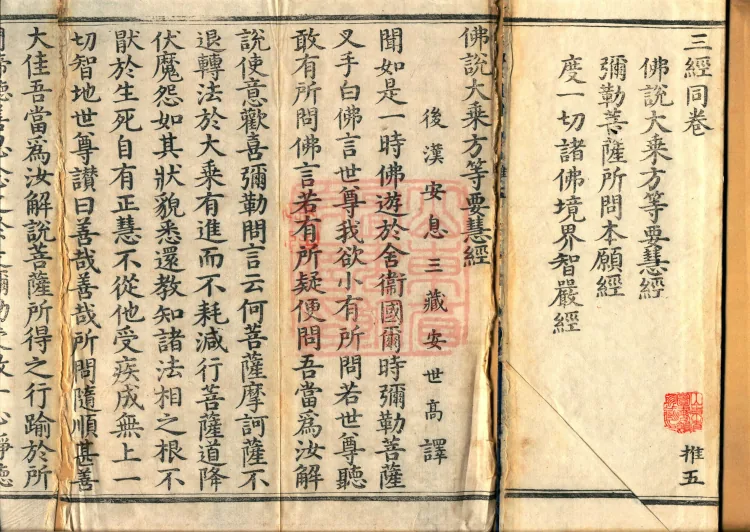 三經同卷
佛說大乘方等要慧經
彌勒菩薩所問本願經
度一切諸佛境界智嚴經
推五
佛說大乘方等要慧經
後漢安息三藏安世高譯
聞如是一時佛遊於舍衛國爾時彌勒菩薩
叉手白佛言世尊我欲小有所問若世尊聽
敢有所問佛言若有所疑便問吾當爲汝解
說使意歡喜彌勒問言云何菩薩摩訶薩不
退轉法於大乘有進而不耗減行菩薩道降
伏魔怨如其狀貌悉還教知諸法相之根不
猒於生死自有正慧不從他受疾成無上一
切智地世尊讃曰善哉善哉所問隨順甚善
大佳吾當爲汝解說菩薩所得之行踰於所